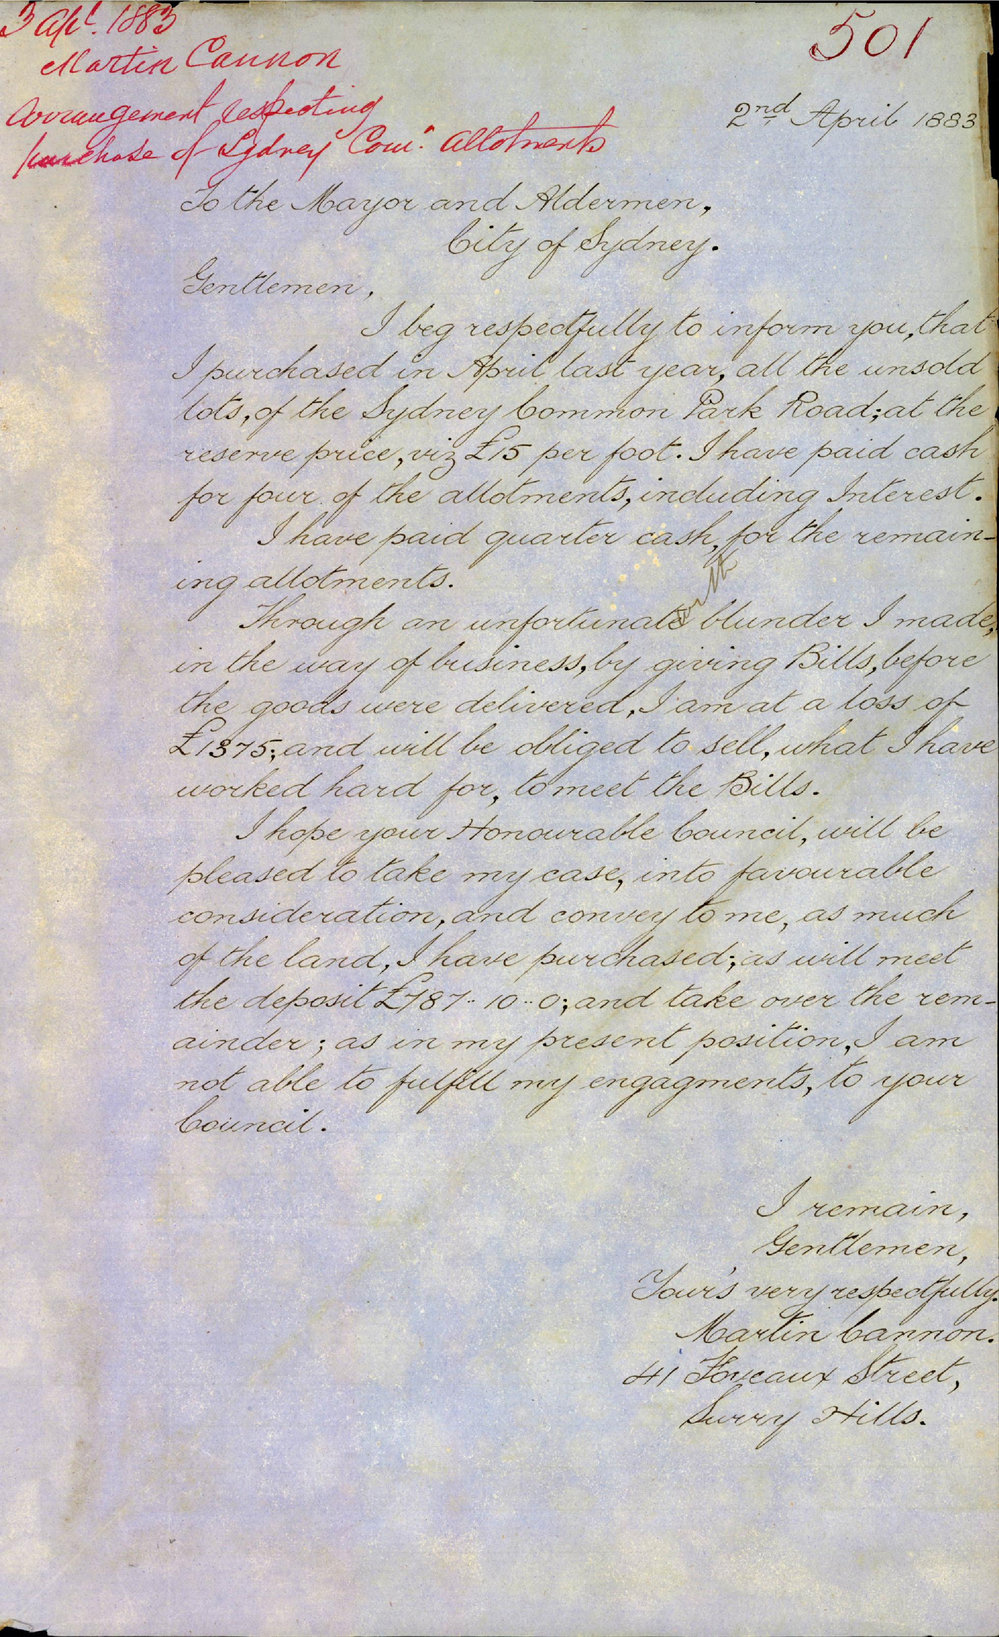 3 Apl. 1883
Martin Cannon
Arrangement respecting
purchase of Sydney Com: Allotments
501
2nd April 1883
To the Mayor and Aldermen,
City of Sydney.
Gentlemen,
I beg respectfully to inform you, that
I purchased in April last year, all the unsold
lots, of the Sydney Common Park Road; at the
reserve price, viz £15 per foot. I have paid cash
for four of the allotments, including Interest.
I have paid quarter cash, for the remain-
ing allotments.
Through an unfortunate blunder I made,
in the way of business, by giving Bills, before
the goods were delivered, I am at a loss of
£1375; and will be obliged to sell, what I have
worked hard for, to meet the Bills.
I hope your Honourable Council, will be
pleased to take my case, into favourable
consideration, and convey to me, as much
of the land, I have purchased; as will meet
the deposit £787-10-0; and take over the rem-
ainder; as in my present position, I am
not able to fulfill my engagments, to your
Council.
I remain,
Gentlemen,
Your's very respectfully.
Martin Cannon.
41 Foveaux Street,
Surry Hills.